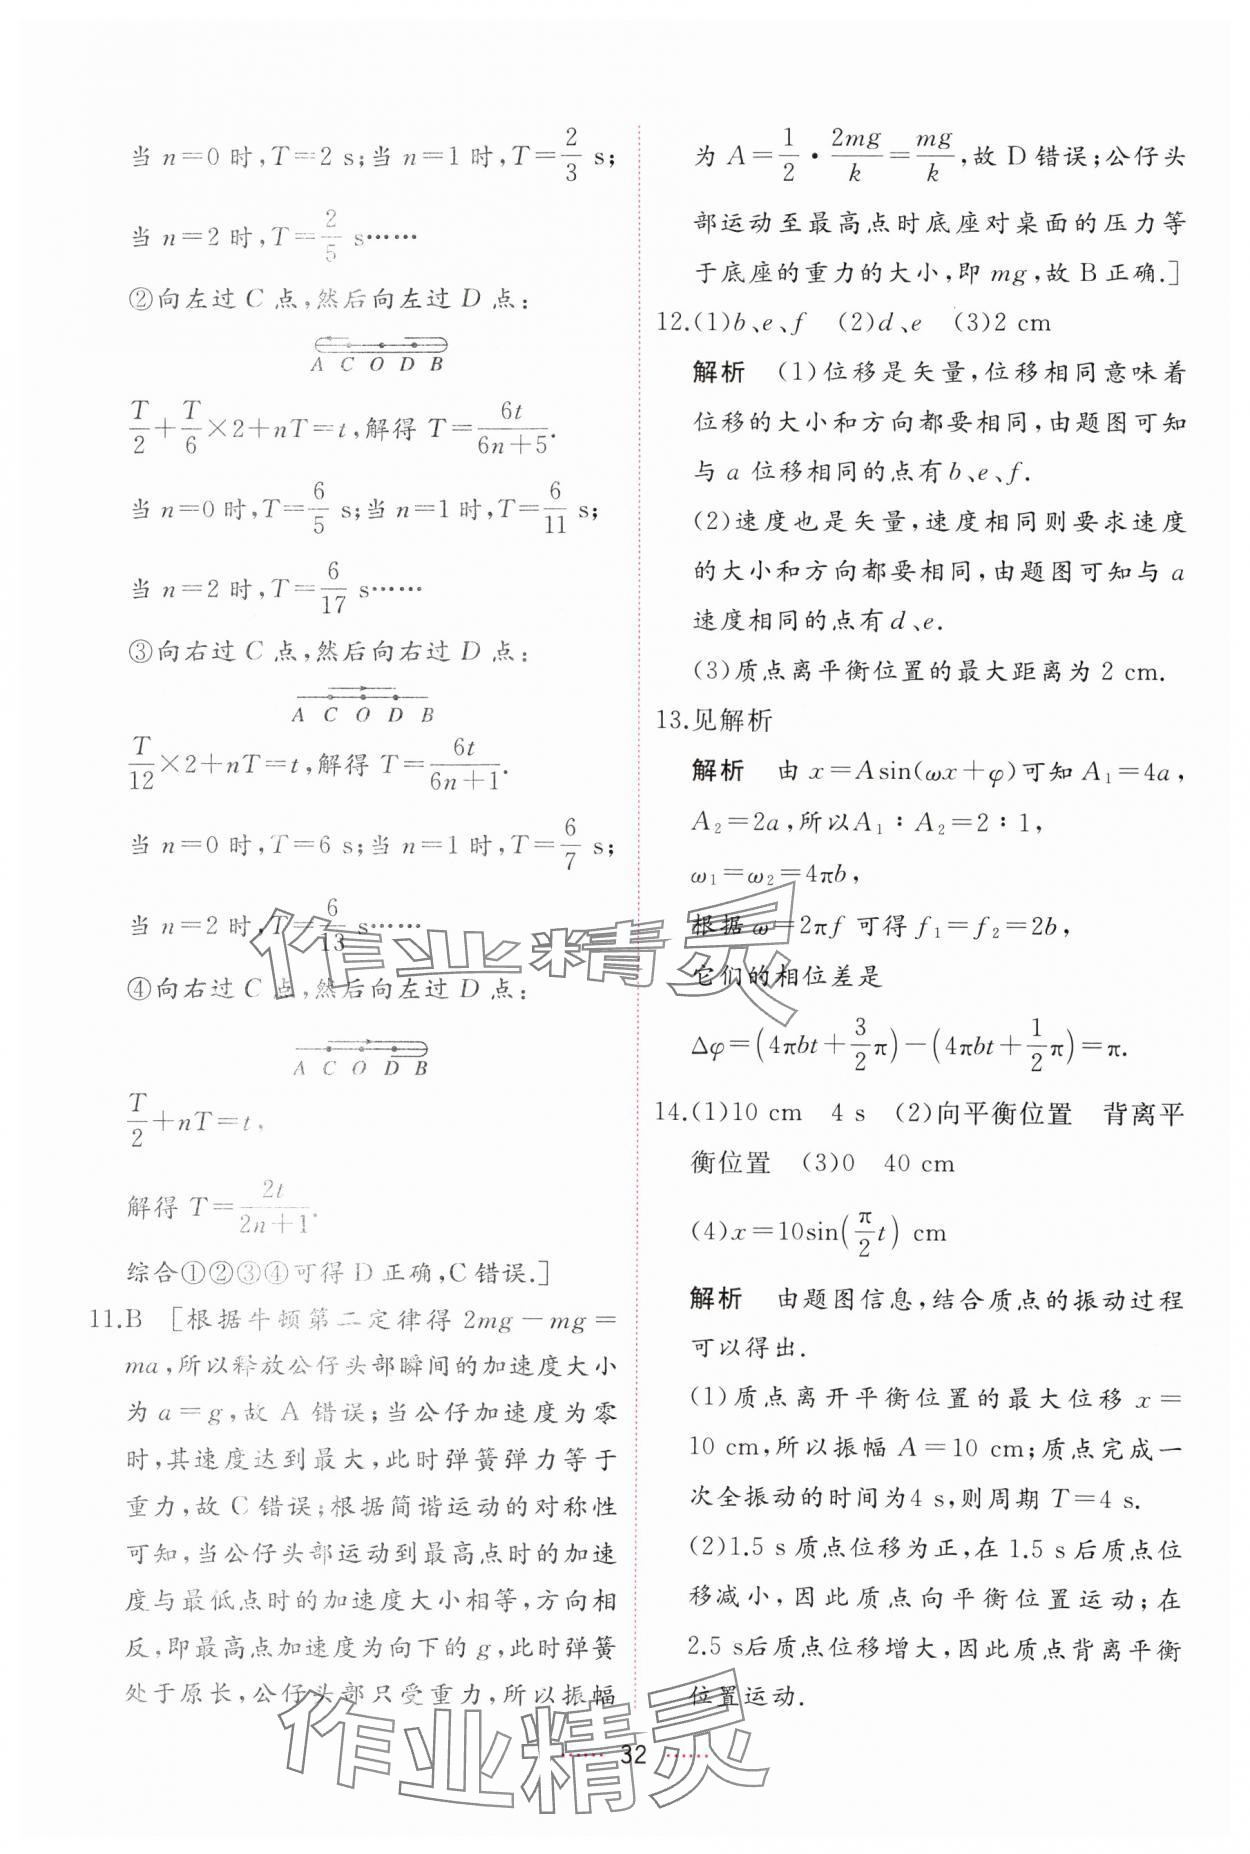 当 n=0 时,T=2 s;当 n=1 时,T=2/3 s;
当 n=2 时,T=2/5 s……
②向左过 C 点,然后向左过 D 点:
A C O D B
T/2+T/6×2+nT=t,解得 T=6t/(6n+5).
当 n=0 时,T=6/5 s;当 n=1 时,T=6/11 s;
当 n=2 时,T=6/17 s……
③向右过 C 点,然后向右过 D 点:
A C O D B
T/12×2+nT=t,解得 T=6t/(6n+1).
当 n=0 时,T=6 s;当 n=1 时,T=6/7 s;
当 n=2 时,T=6/13 s……
④向右过 C 点,然后向左过 D 点:
A C O D B
T/2+nT=t,
解得 T=2t/(2n+1).
综合①②③④可得 D 正确,C 错误.]
11.B [根据牛顿第二定律得 2mg-mg=
ma,所以释放公仔头部瞬间的加速度大小
为 a=g,故 A 错误;当公仔加速度为零
时,其速度达到最大,此时弹簧弹力等于
重力,故 C 错误;根据简谐运动的对称性
可知,当公仔头部运动到最高点时的加速
度与最低点时的加速度大小相等,方向相
反,即最高点加速度为向下的 g,此时弹簧
处于原长,公仔头部只受重力,所以振幅
为 A=1/2·2mg/k=mg/k,故 D 错误;公仔头
部运动至最高点时底座对桌面的压力等
于底座的重力的大小,即 mg,故 B 正确.]
12.(1)b、e、f (2)d、e (3)2 cm
解析 (1)位移是矢量,位移相同意味着
位移的大小和方向都要相同,由题图可知
与 a 位移相同的点有 b、e、f.
(2)速度也是矢量,速度相同则要求速度
的大小和方向都要相同,由题图可知与 a
速度相同的点有 d、e.
(3)质点离平衡位置的最大距离为 2 cm.
13.见解析
解析 由 x=Asin(ωx+φ)可知 A₁=4a,
A₂=2a,所以A₁∶A₂=2∶1,
ω₁=ω₂=4πb,
根据 ω=2πf 可得 f₁=f₂=2b,
它们的相位差是
Δφ=(4πbt+3/2π)-(4πbt+1/2π)=π.
14.(1)10 cm 4 s (2)向平衡位置 背离平
衡位置 (3)0 40 cm
(4)x=10sin(π/2 t) cm
解析 由题图信息,结合质点的振动过程
可以得出.
(1)质点离开平衡位置的最大位移 x=
10 cm,所以振幅 A=10 cm;质点完成一
次全振动的时间为4 s,则周期 T=4 s.
(2)1.5 s 质点位移为正,在 1.5 s 后质点位
移减小,因此质点向平衡位置运动;在
2.5 s后质点位移增大,因此质点背离平衡
位置运动.
32
作业精灵
作业精灵